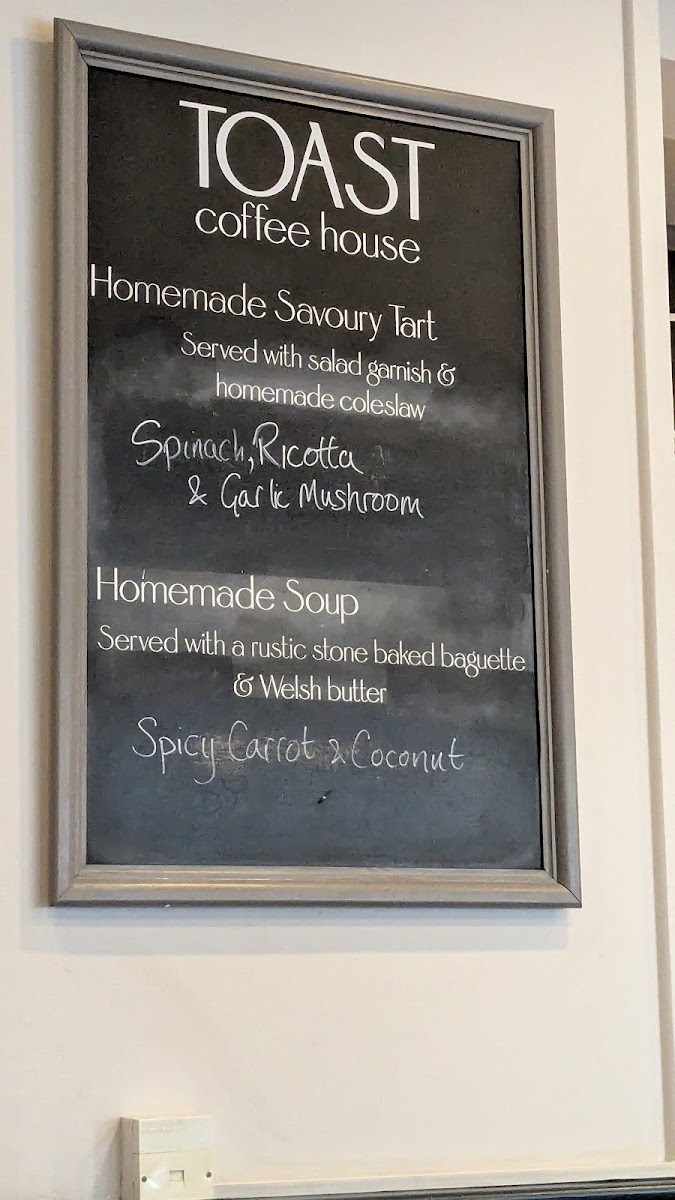 TOAST
coffee house
Homemade Savoury Tart
Served with salad garnish &
homemade coleslaw
Spinach, Ricotta
& Garlic Mushroom
Homemade Soup
Served with a rustic stone baked baguette
& Welsh butter
Spicy Carrot & Coconut